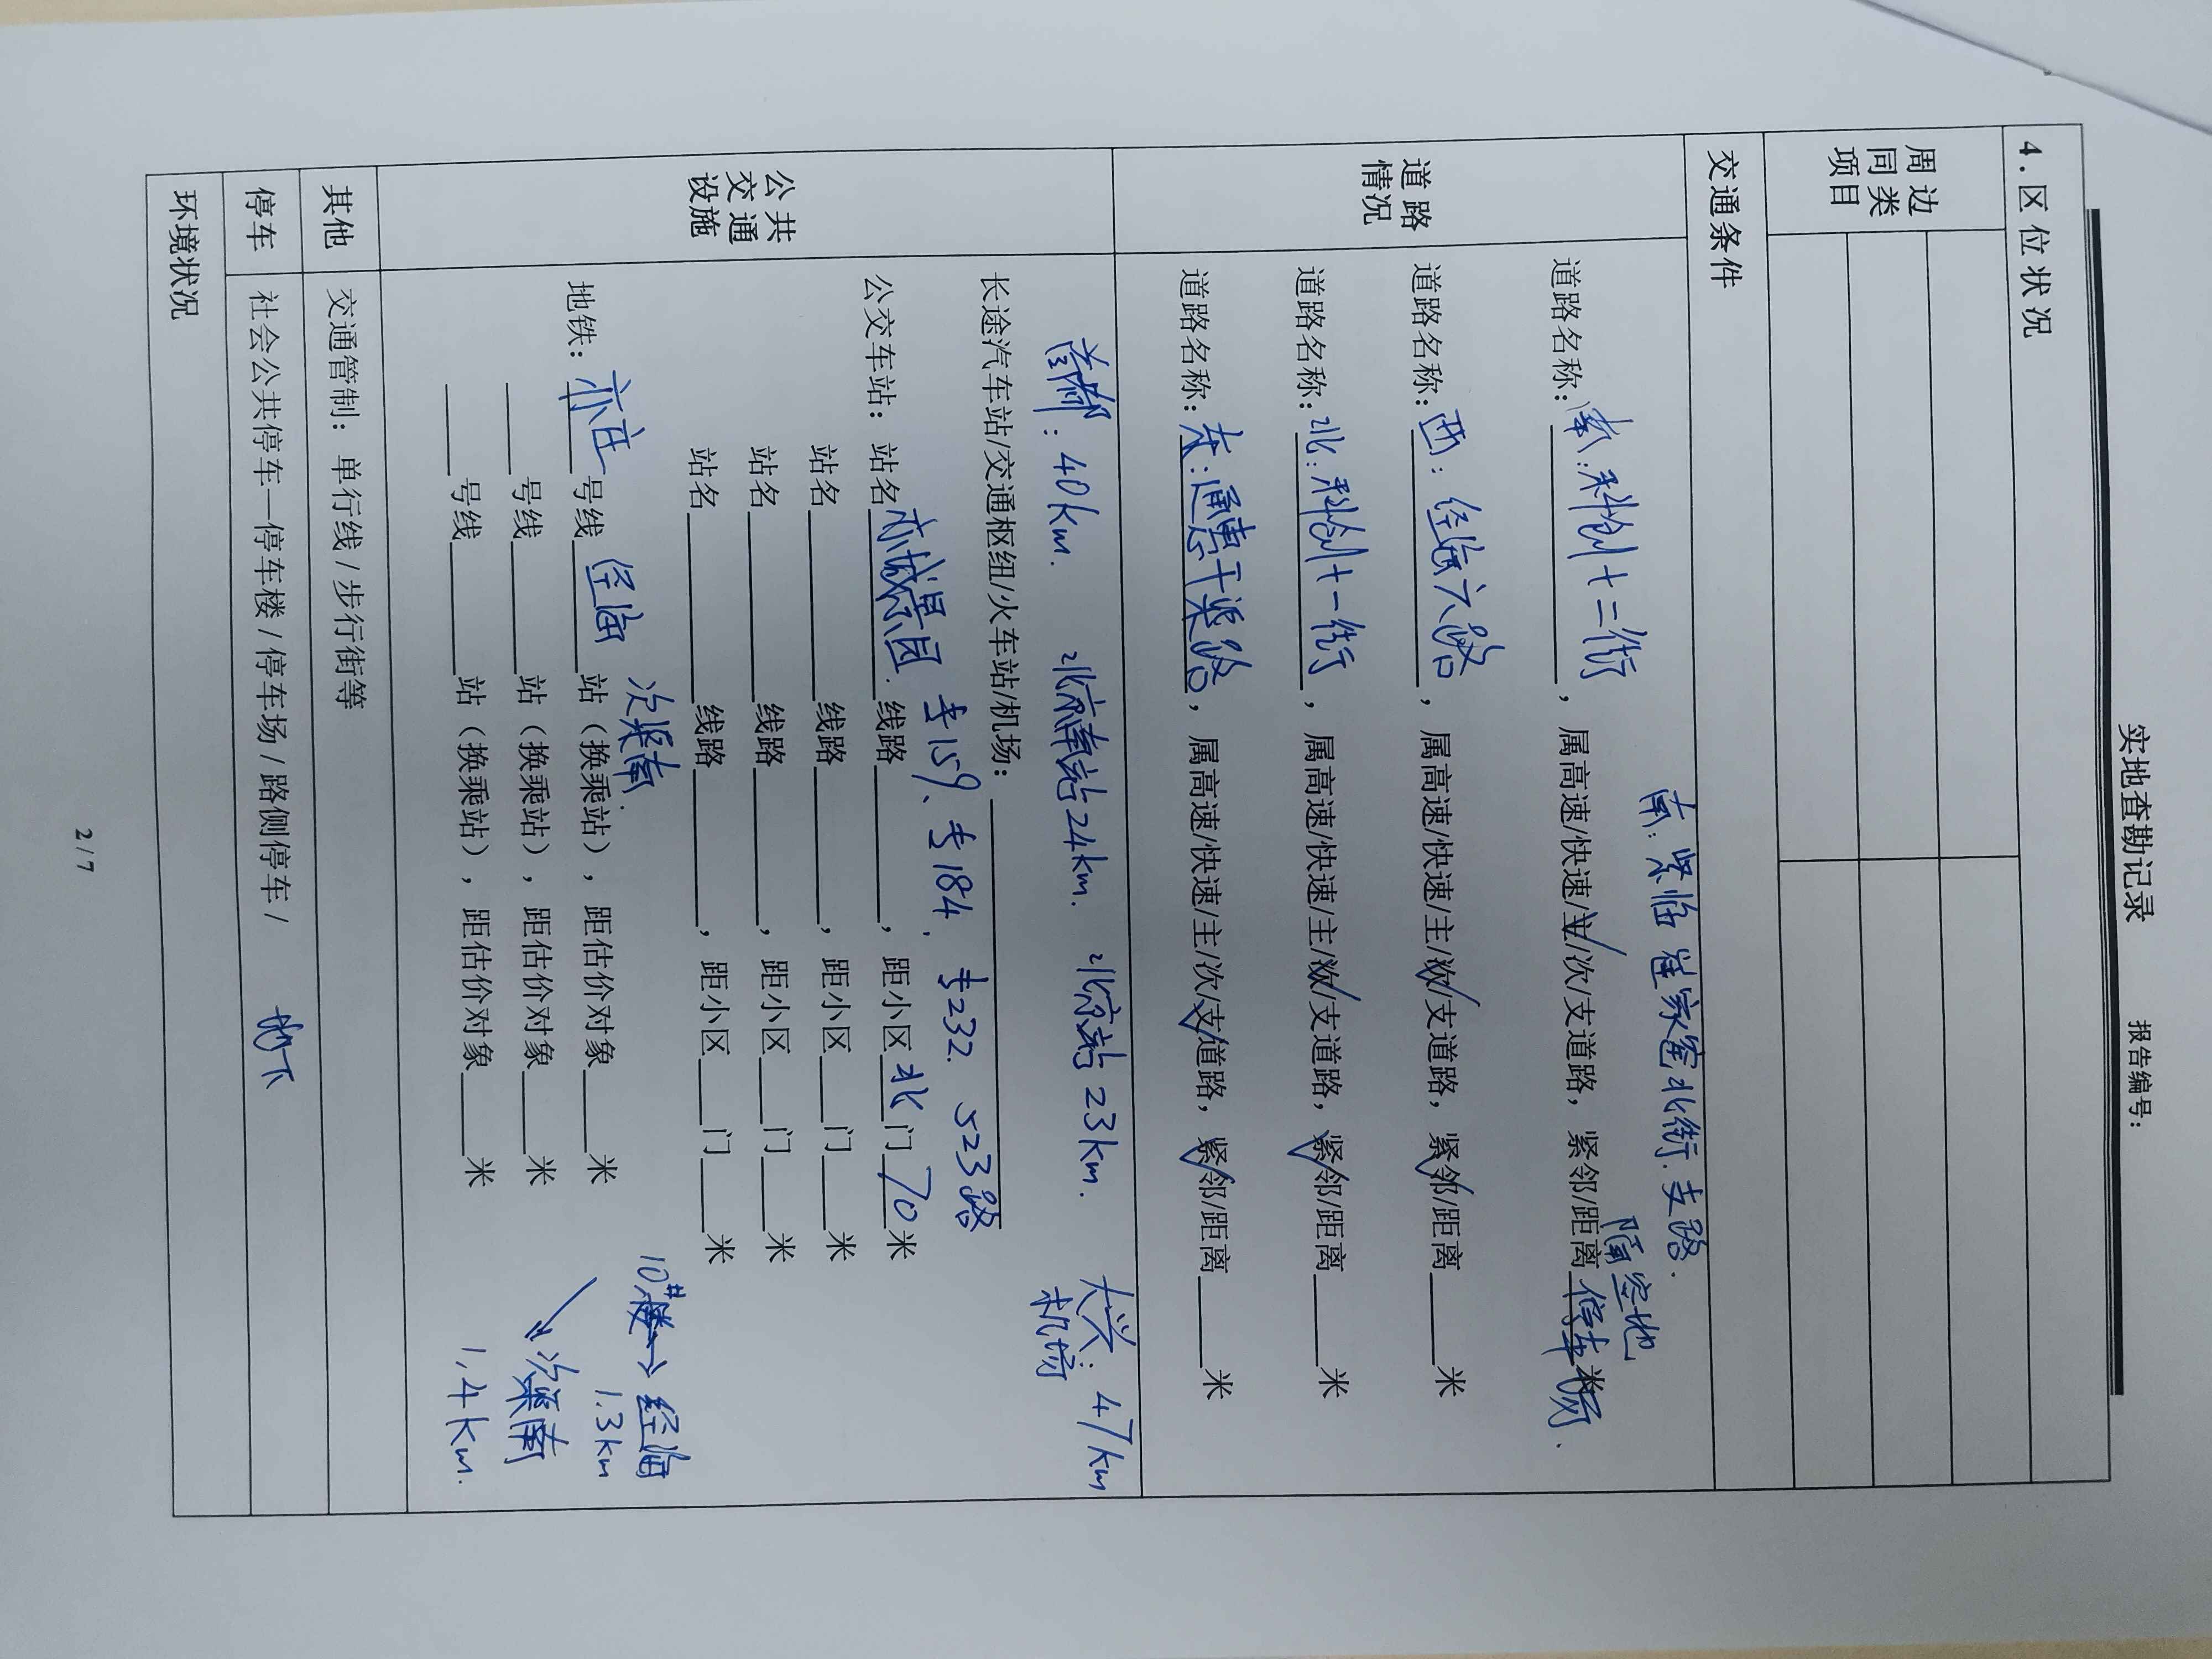 实地查勘记录 报告编号:
4.区位状况
周边同类项目
交通条件
南:紧临崔家窑北街.支路.
道路情况
隔空地
道路名称:南:科创十二街,属高速/快速/主/次/支道路,紧邻/距离停车场.米
道路名称:西:经海六路,属高速/快速/主/次/支道路,紧邻/距离____米
道路名称:北:科创十一街,属高速/快速/主/次/支道路,紧邻/距离____米
道路名称:东:通惠干渠路,属高速/快速/主/次/支道路,紧邻/距离____米
公共交通设施
首都:40km. 北京南站24km. 北京站23km. 大兴机场:47km
长途汽车站/交通枢纽/火车站/机场:____
专159、专184、专232. 523路
公交车站:站名亦城景园.线路____,距小区北门70米
站名____线路____,距小区____门____米
站名____线路____,距小区____门____米
站名____线路____,距小区____门____米
次渠南. 10#楼→经海 1.3km
地铁:亦庄号线经海站(换乘站),距估价对象____米
____号线____站(换乘站),距估价对象____米 次渠南
____号线____站(换乘站),距估价对象____米 1.4km.
其他 交通管制:单行线/步行街等
停车 社会公共停车—停车楼/停车场/路侧停车/ 地下
环境状况
2/7